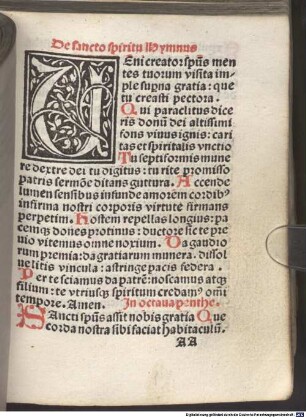 De sancto spiritu Hymnus
VEni creator spũs men
tes tuorum visita im⸗
ple supna gratia: que
tu creasti pectora.
Qui paraclitus dice
ris donũ dei altissimi
fons viuus ignis: cari
tas et spiritalis vnctio
Tu septiformis mune
re dextre dei tu digitus: tu rite promisso
patris sermõe ditans guttura. Accende
lumen sensibus infunde amorem cordibꝰ
infirma nostri corporis virtute firmans
perpetim. Hostem repellas longius: pa
cemqꝫ dones protinus: ductore sic te pre
uio vitemus omne noxium. Da gaudio
rum premia: da gratiarum munera. dissol
ue litis vincula: astringe pacis federa.
Per te sciamus da patrẽ: noscamus atqꝫ
filium: te vtriusqꝫ spiritum credamꝰ omi
tempore. Amen. In octaua penthe.
SAncti spũs assit nobis gratia Que
corda nostra sibi faciat habitaculũ.
AA